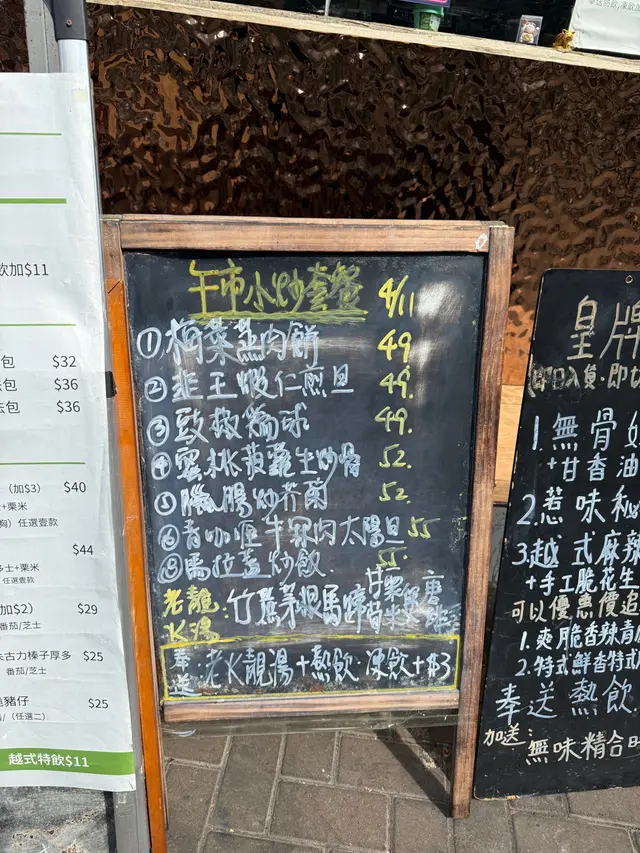 飲加$11
包 $32
$36
法包 $36
(加$3) $40
士+栗米
任選壹款
$44
多士+栗米
任選壹款
加$2) $29
番茄/芝士
朱古力榛子厚多 $25
番茄/芝士
脆豬仔 $25
(任選二)
越式特飲$11
午市小炒套餐 4/11
① 梅菜蒸肉餅 49
② 韮王蝦仁煎旦 49.
③ 豉椒鷄球 49.
④ 蜜桃菠蘿生炒骨 52.
⑤ 臘腸炒芥蘭 52.
⑥ 青咖喱牛㬹肉太陽旦 55
⑧ 馬拉盞炒飯 55.
老靚:竹蔗茅根馬蹄甘
K湯
奉送:老K靚湯+熱飲·凍飲+$3
皇牌
即日入貨.即
1.無骨
+甘香油
2.惹味
3.越式麻辣
+手工脆花生
可以優惠價追
1.爽脆香辣青
2.特式鮮香特式
奉送熱飲.
加送:
無味精合